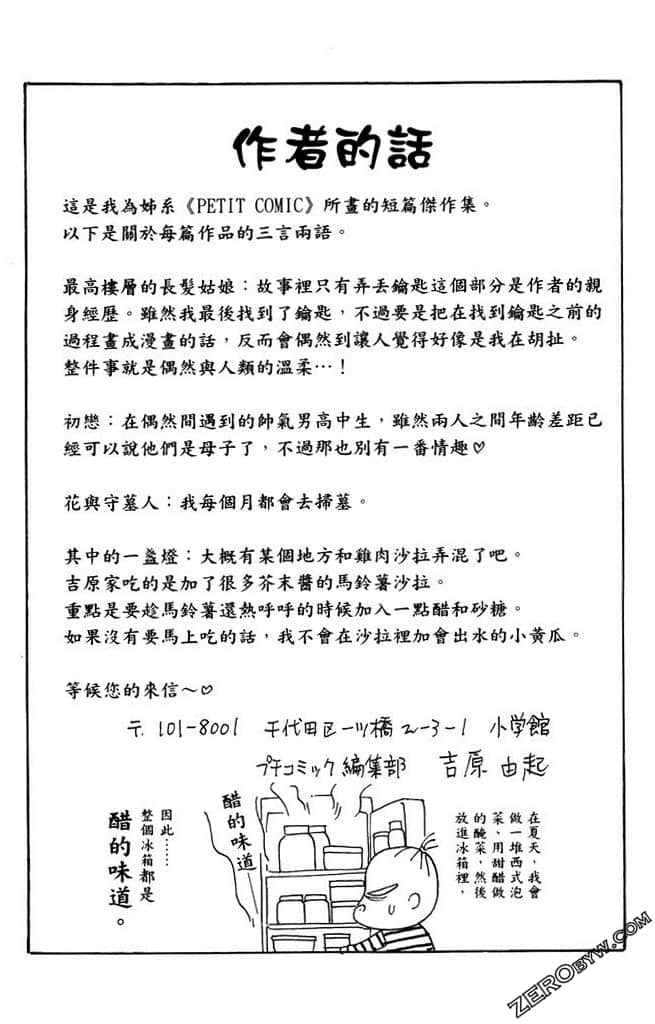 作者的話
這是我為姊系《PETIT COMIC》所畫的短篇傑作集。
以下是關於每篇作品的三言兩語。
最高樓層的長髮姑娘：故事裡只有弄丟鑰匙這個部分是作者的親
身經歷。雖然我最後找到了鑰匙，不過要是把在找到鑰匙之前的
過程畫成漫畫的話，反而會偶然到讓人覺得好像是我在胡扯。
整件事就是偶然與人類的溫柔…！
初戀：在偶然間遇到的帥氣男高中生，雖然兩人之間年齡差距已
經可以說他們是母子了，不過那也別有一番情趣♡
花與守墓人：我每個月都會去掃墓。
其中的一盞燈：大概有某個地方和雞肉沙拉弄混了吧。
吉原家吃的是加了很多芥末醬的馬鈴薯沙拉。
重點是要趁馬鈴薯還熱呼呼的時候加入一點醋和砂糖。
如果沒有要馬上吃的話，我不會在沙拉裡加會出水的小黃瓜。
等候您的來信～♡
〒101-8001 千代田区一ツ橋2-3-1 小学館
プチコミック編集部 吉原由起
在夏天，我會
做一堆西式泡
菜、用甜醋做
的醃菜，然後
放進冰箱裡，
醋的味道
因此……
整個冰箱都是
醋的味道。
ZEROBYW.COM